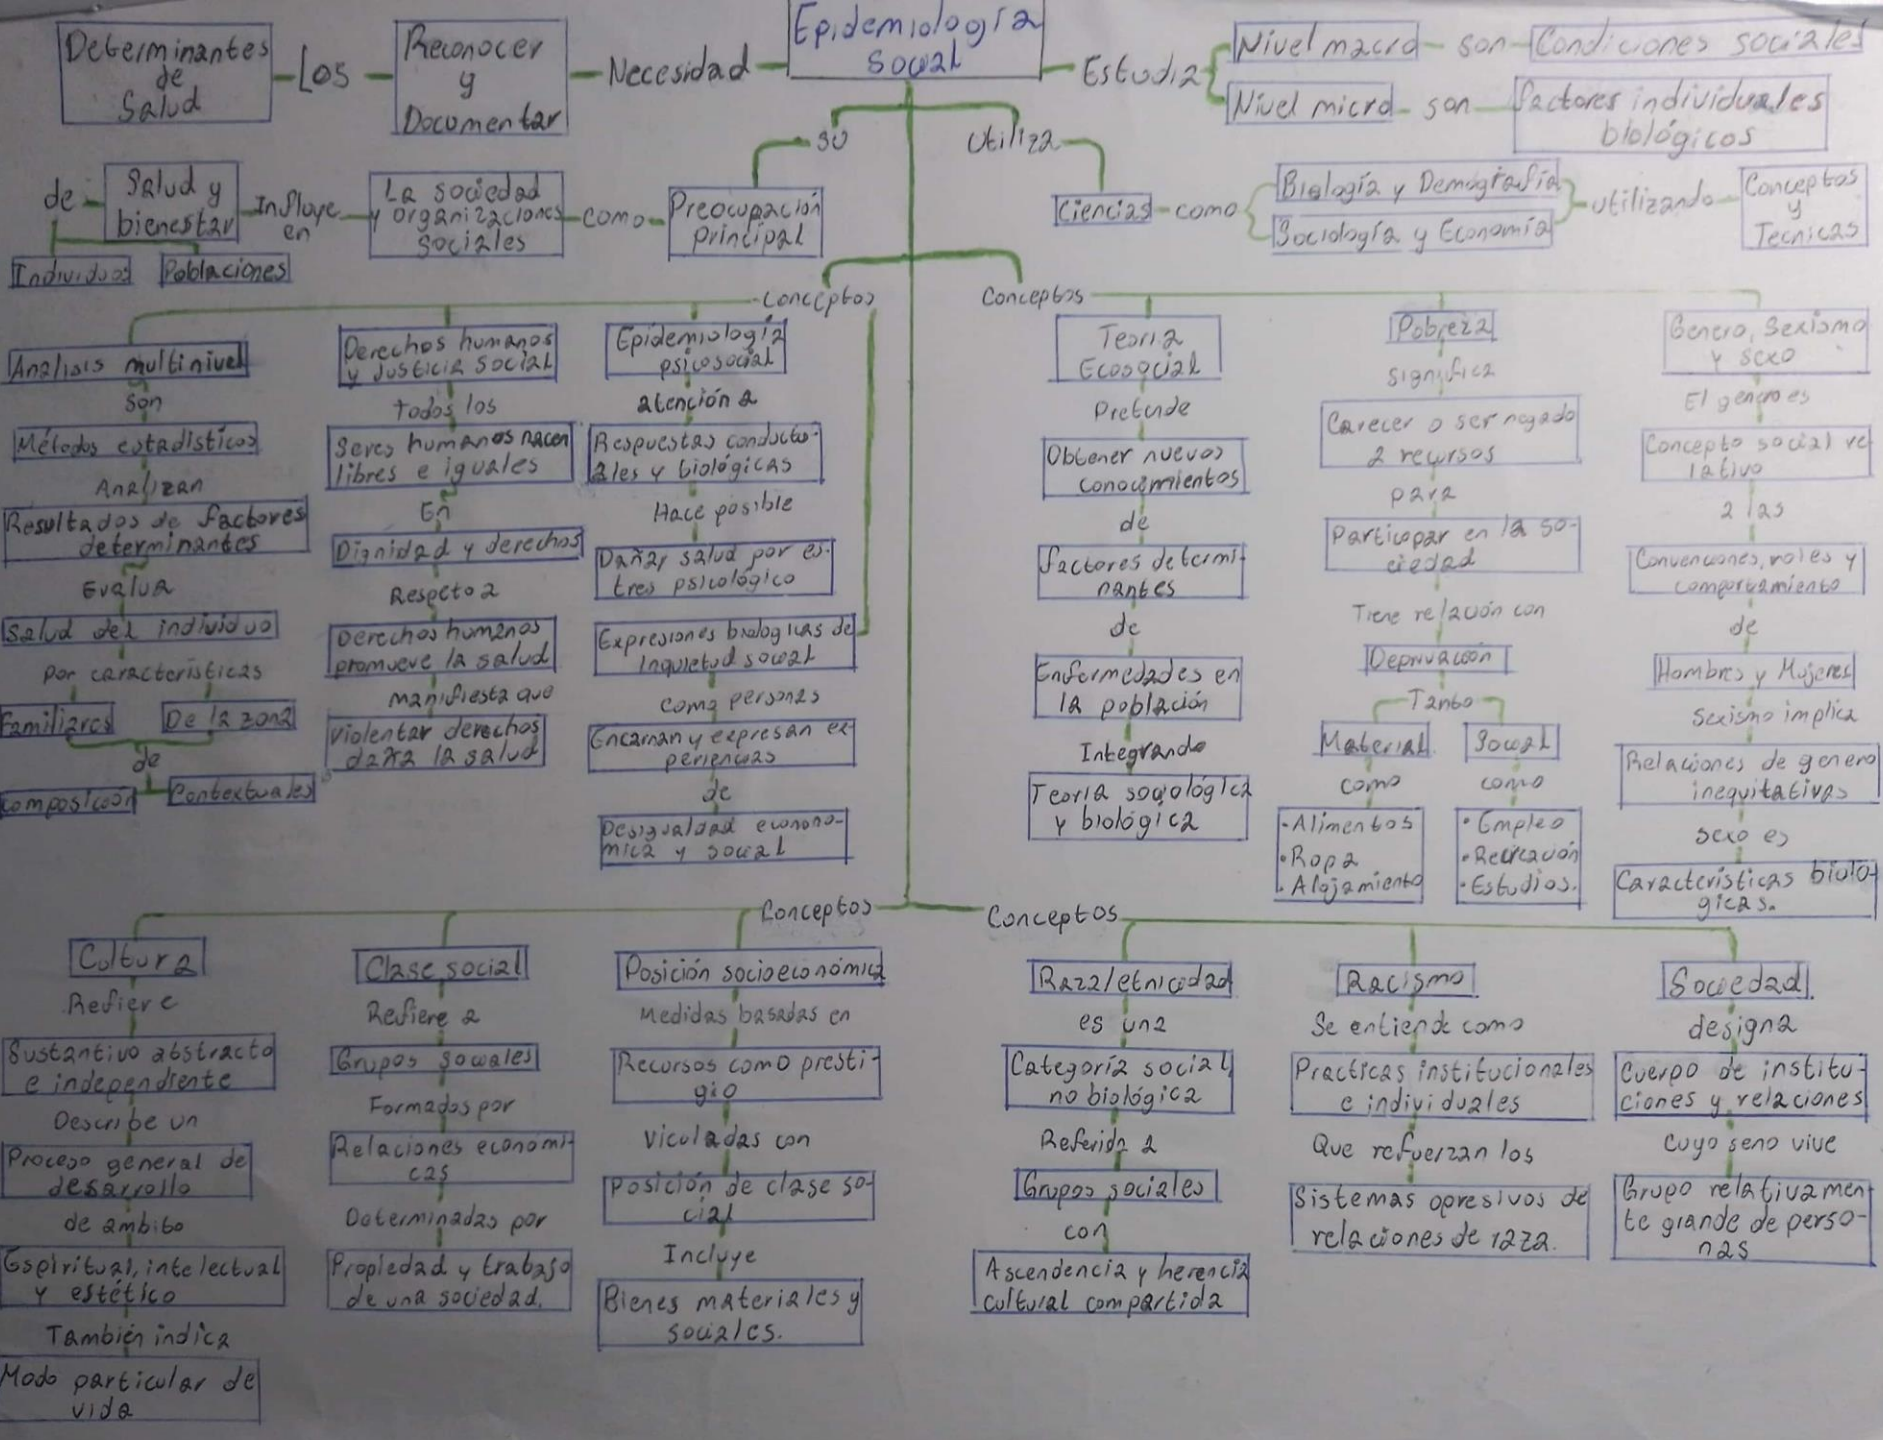 Epidemiología
Social
Necesidad
Reconocer
y
Documentar
Los
Determinantes
de
Salud
Estudia
Nivel macro son Condiciones sociales
Nivel micro son factores individuales
biológicos
su
Preocupación
principal
como
La sociedad
y organizaciones
sociales
Influye
en
Salud y
bienestar
de
Individuos
Poblaciones
Utiliza
Ciencias como
Biología y Demografía
Sociología y Economía
utilizando
Conceptos
y
Tecnicas
Conceptos
Analisis multinivel
son
Métodos estadísticos
Analizan
Resultados de factores
determinantes
Evalua
Salud del individuo
por características
Familiares
De la zona
de
composición
Contextuales
Derechos humanos
y Justicia social
todos los
Seres humanos nacen
libres e iguales
En
Dignidad y derechos
Respecto a
Derechos humanos
promueve la salud
manifiesta que
violentar derechos
daña la salud
Epidemiología
psicosocial
atención a
Respuestas conductu-
ales y biológicas
Hace posible
Dañar salud por es-
tres psicológico
Expresiones biologicas de
Inquietud social
como personas
Encarnan y expresan ex-
periencias
de
Desigualdad econono-
mica y social
Conceptos
Teoria
Ecosocial
Pretende
Obtener nuevos
conocimientos
de
factores determi-
nantes
de
Enfermedades en
la población
Integrando
Teoria sociológica
y biológica
Pobreza
significa
Carecer o ser negado
a recursos
para
Participar en la so-
ciedad
Tiene relación con
Deprivación
Tanto
Material
como
• Alimentos
• Ropa
• Alojamiento
Social
como
• Empleo
• Recreación
• Estudios.
Genero, Sexismo
y sexo
El genero es
Concepto social re
lativo
a las
Convenciones, roles y
comportamiento
de
Hombres y Mujeres
Sexismo implica
Relaciones de genero
inequitativas
sexo es
Características bioló-
gicas.
Conceptos
Cultura
Refiere
Sustantivo abstracto
e independiente
Describe un
Proceso general de
desarrollo
de ambito
Espiritual, intelectual
y estético
También indica
Modo particular de
vida
Clase social
Refiere a
Grupos sociales
Formados por
Relaciones económi-
cas
Determinadas por
Propiedad y trabajo
de una sociedad.
Posición socioeconómica
Medidas basadas en
Recursos como presti-
gio
Viculadas con
Posición de clase so-
cial
Incluye
Bienes materiales y
sociales.
Conceptos
Raza/etnicidad
es una
Categoría social,
no biológica
Referida a
Grupos sociales
con
Ascendencia y herencia
cultural compartida
Racismo
Se entiende como
Practicas institucionales
e individuales
Que refuerzan los
Sistemas opresivos de
relaciones de raza.
Sociedad
designa
Cuerpo de institu-
ciones y relaciones
Cuyo seno vive
Grupo relativamen-
te grande de perso-
nas